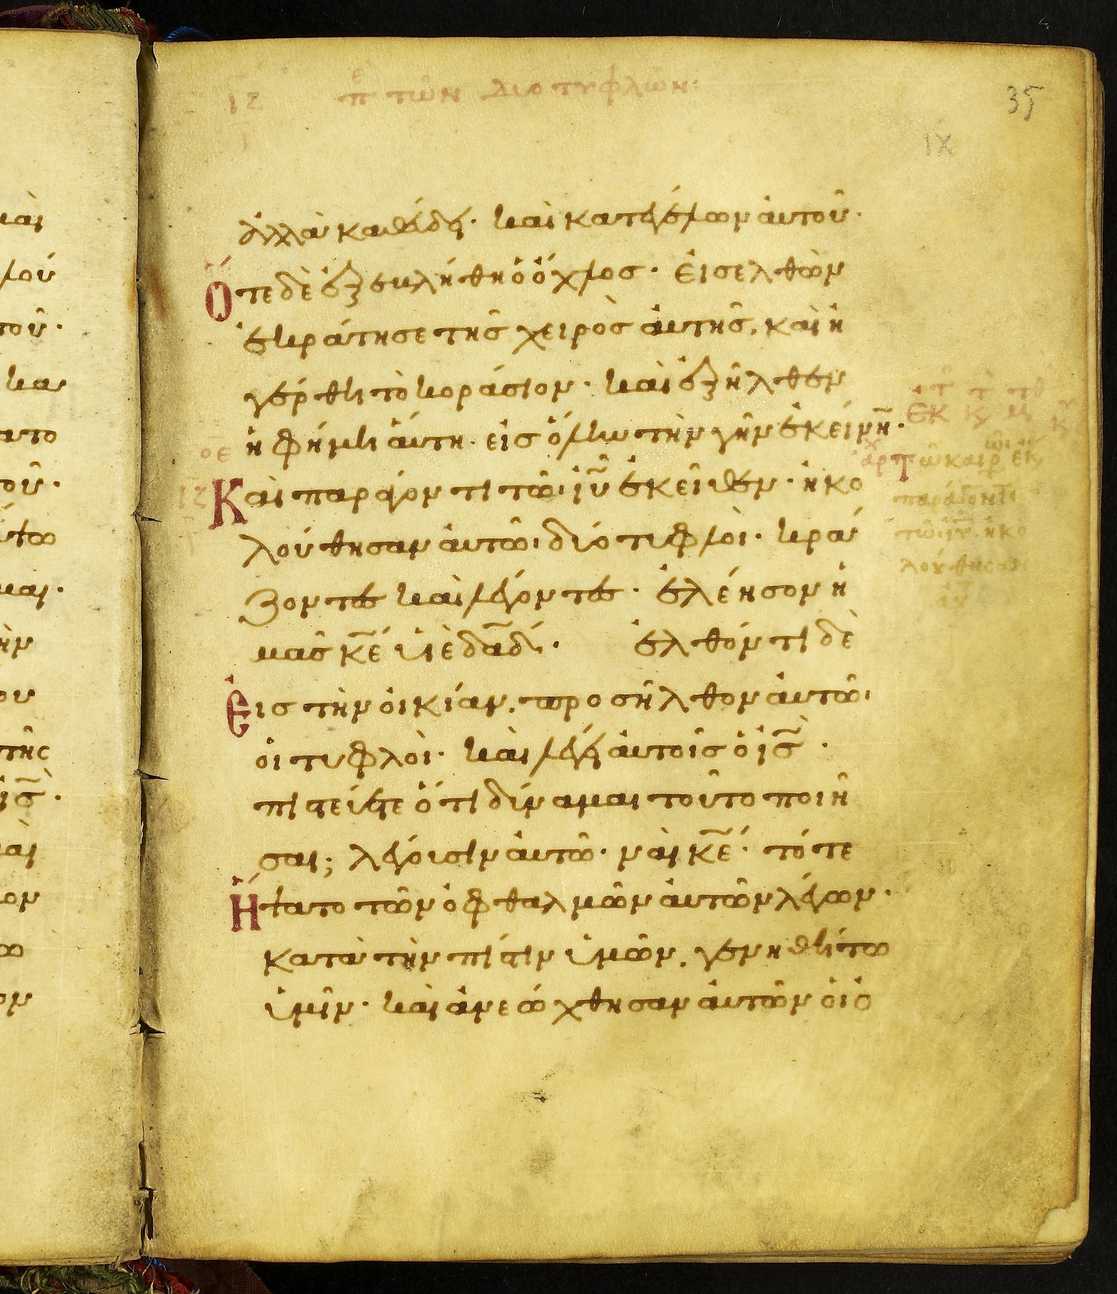 ιζ π̅ε̅ τῶν δύο τυφλῶν·
35
IX
ἀλλὰ καθεύδει· καὶ κατεγέλων αὐτοῦ·
Ὅτε δὲ ἐξεβλήθη ὁ ὄχλος· εἰσελθὼν
ἐκράτησε τῆς χειρὸς αὐτῆς, καὶ ἠ
γέρθη τὸ κοράσιον· καὶ ἐξῆλθεν
ἡ φήμη αὕτη· εἰς ὅλην τὴν γῆν ἐκείνη̅·
οε
ιζ
Καὶ παράγοντι τῶ ἰῦ ἐκεῖθεν· ἠκο
λούθησαν αὐτῶ· δύο τυφλοὶ· κρά
ζοντες καὶ λέγοντες· ἐλέησον ἡ
μᾶς κ̅ε̅ υἱὲ δα̅δ̅· ἐλθόντι δὲ
Εἰς τὴν οἰκίαν, προσῆλθον αὐτῶ·
οἱ τυφλοὶ· καὶ λέγει αὐτοῖς ὁ ι̅ς̅·
πιστεύετε ὅτι δύναμαι τοῦτο ποιῆ
σαι; λέγουσιν αὐτῶ· ναὶ κ̅ε̅· τότε
Ἥψατο τῶν ὀφθαλμῶν αὐτῶν λέγων·
κατὰ τὴν πίστιν ὑμῶν, γενηθήτω
ὑμῖν· καὶ ἀνεώχθησαν αὐτῶν οἱ ὀ
Τῶ καιρ ἐκ
παράγοντι
τῶ ἰῦ ἠκο
λούθησαν